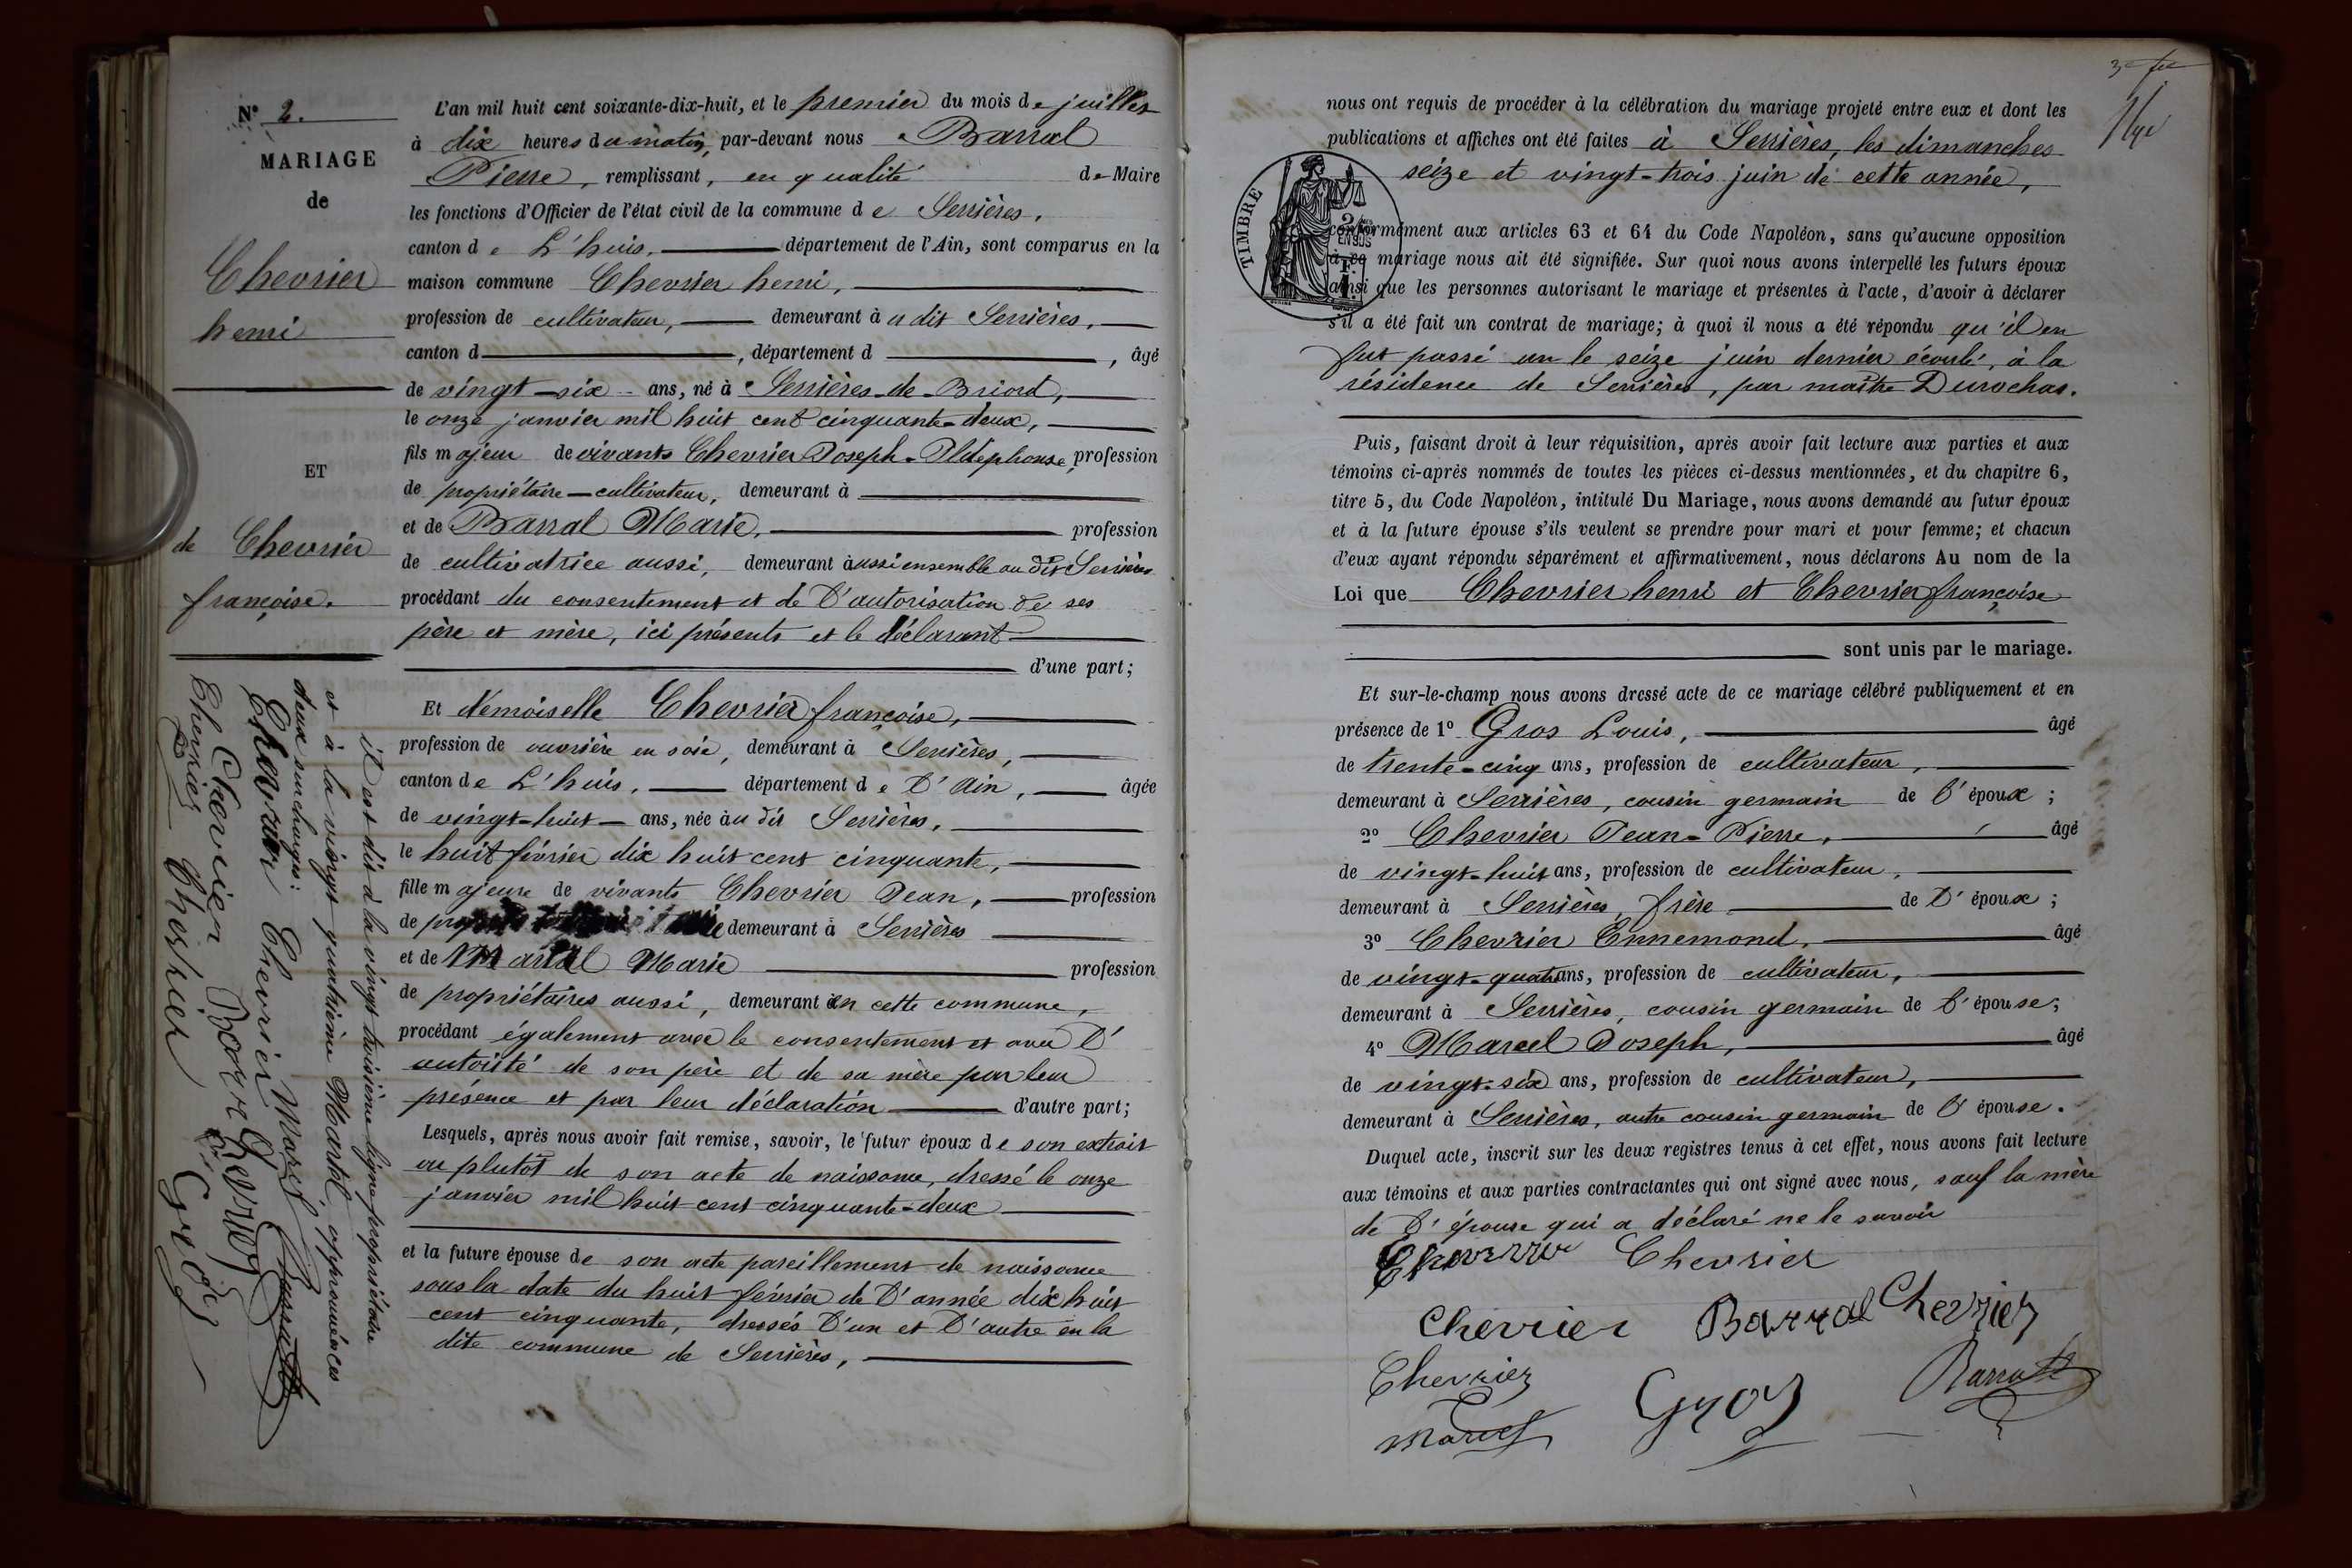 N° 2.
MARIAGE
de
Chevrier
henri
ET
de Chevrier
françoise.
L'an mil huit cent soixante-dix-huit, et le premier du mois de juillet
à dix heures du matin, par-devant nous Barral
Pierre, remplissant, en qualité de Maire
les fonctions d'Officier de l'état civil de la commune de Serrières,
canton de L'huis, département de l'Ain, sont comparus en la
maison commune Chevrier henri,
profession de cultivateur, demeurant à u dit Serrières,
canton d , département d , âgé
de vingt-six ans, né à Serrières-de-Briord,
le onze janvier mil huit cent cinquante-deux,
fils majeur de vivants Chevrier Joseph-Ildephonse, profession
de propriétaire-cultivateur, demeurant à
et de Barral Marie, profession
de cultivatrice aussi, demeurant à ussi ensemble au dit Serrières
procédant du consentement et de l'autorisation de ses
père et mère, ici présents et le déclarant
d'une part;
Et demoiselle Chevrier françoise,
profession de ouvrière en soie, demeurant à Serrières,
canton de L'huis, département de l'Ain, âgée
de vingt-huit ans, née à u dit Serrières,
le huit février dix huit cent cinquante,
fille majeure de vivants Chevrier Jean, profession
de demeurant à Serrières
et de Marie profession
de propriétaires aussi, demeurant en cette commune,
procédant également avec le consentement et avec l'
autorité de son père et de sa mère par leur
présence et par leur déclaration d'autre part;
Lesquels, après nous avoir fait remise, savoir, le futur époux de son extrait
ou plutôt de son acte de naissance, dressé le onze
janvier mil huit cent cinquante-deux
et la future épouse de son acte pareillement de naissance
sous la date du huit février de l'année dix huit
cent cinquante, dressés l'un et l'autre en la
dite commune de Serrières,
il est dit à la vingt troisième ligne propriétaire
et à la vingt quatrième Martel, approuvées ces
deux surcharges:
Chevrier Chevrier Marcel Barral
Chevrier Barral Chevrier
Chevrier Chevrier Gros
3e
nous ont requis de procéder à la célébration du mariage projeté entre eux et dont les
publications et affiches ont été faites à Serrières, les dimanches
seize et vingt-trois juin de cette année,
TIMBRE
conformément aux articles 63 et 64 du Code Napoléon, sans qu'aucune opposition
à ce mariage nous ait été signifiée. Sur quoi nous avons interpellé les futurs époux
ainsi que les personnes autorisant le mariage et présentes à l'acte, d'avoir à déclarer
s'il a été fait un contrat de mariage; à quoi il nous a été répondu qu'il en
fut passé un le seize juin dernier écoulé, à la
résidence de Serrières, par maître Durochas.
Puis, faisant droit à leur réquisition, après avoir fait lecture aux parties et aux
témoins ci-après nommés de toutes les pièces ci-dessus mentionnées, et du chapitre 6,
titre 5, du Code Napoléon, intitulé Du Mariage, nous avons demandé au futur époux
et à la future épouse s'ils veulent se prendre pour mari et pour femme; et chacun
d'eux ayant répondu séparément et affirmativement, nous déclarons Au nom de la
Loi que Chevrier henri et Chevrier françoise
sont unis par le mariage.
Et sur-le-champ nous avons dressé acte de ce mariage célébré publiquement et en
présence de 1° Gros Louis, âgé
de trente-cinq ans, profession de cultivateur,
demeurant à Serrières, cousin germain de l'époux;
2° Chevrier Jean-Pierre, âgé
de vingt-huit ans, profession de cultivateur,
demeurant à Serrières, frère de l'époux;
3° Chevrier Ennemond, âgé
de vingt-quatre ans, profession de cultivateur,
demeurant à Serrières, cousin germain de l'épouse;
4° Marcel Joseph, âgé
de vingt-six ans, profession de cultivateur,
demeurant à Serrières, autre cousin germain de l'épouse.
Duquel acte, inscrit sur les deux registres tenus à cet effet, nous avons fait lecture
aux témoins et aux parties contractantes qui ont signé avec nous, sauf la mère
de l'épouse qui a déclaré ne le savoir
Chevrier Chevrier
Chevrier Barral Chevrier
Chevrier Gros Barral
Marcel